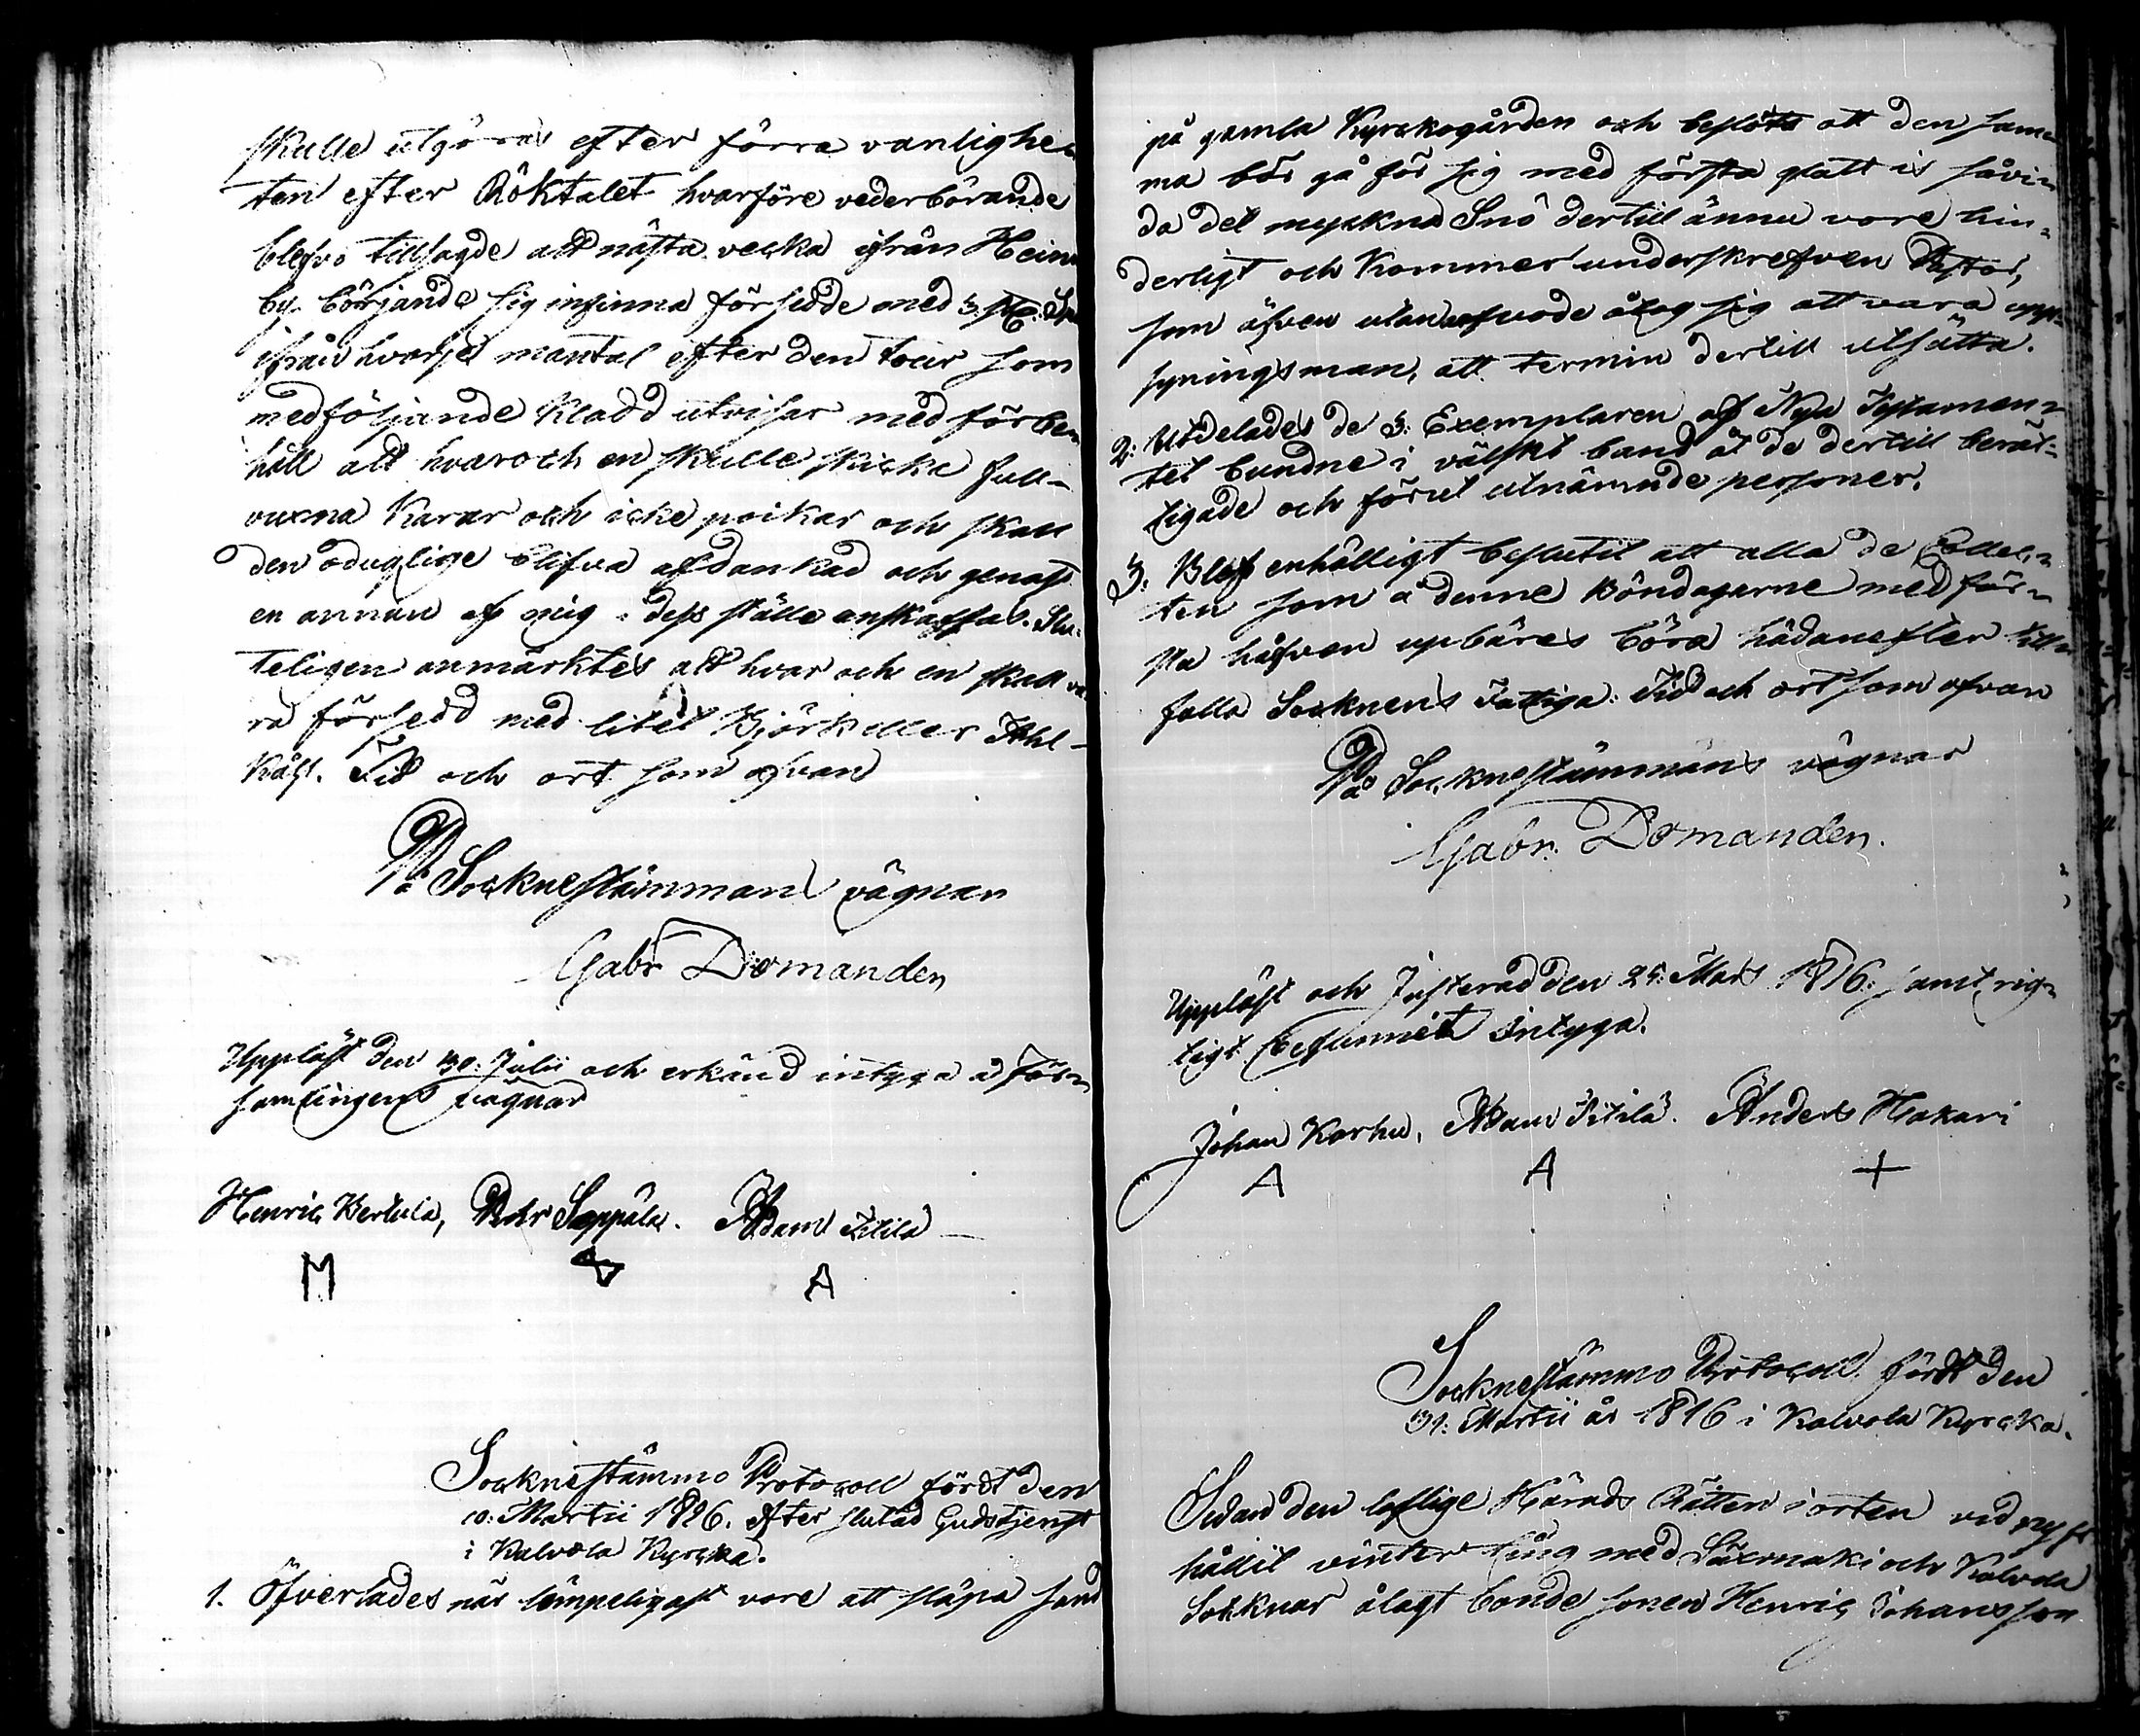 skulle utgöras efter förra vanlighe-
ten efter Röktalet hvarföre vederbörande
blefvo tillsagde att nästa vecka ifrån Heinu
by börjande sig infinna försedde med 3.
ifrån hvarje mantal efter den tour som
medföljande Kladd utvisar med förbe-
håll att hvar och en skulle skicka full-
vuxna Karar och icke poikar och skall
den oduglige blifva afdankad och genast
en annan af mig i dess ställe anskaffas. Slu-
teligen anmärktes att hvar och en skall va-
ra försedd med litet Björk eller Ahl-
Käft. Tid och ort som ofvan
På Socknestämmans vägnar
Gabr Dromanden
Uppläst den 30. Julii och erkänd intyga å för-
samlingens vägnar
Henric Bertula, Behr Seppälä. Adam Iitilä
M A
Socknestämmo Protocoll fördt den
10. Martii 1816. efter slutad Gudstjenst
i Kalvola Kyrcka.
1. Öfverlades när lämpeligast vore att släpa sand
på gamla Kyrckogården och beslöts att den sam-
ma bör gå för sig med första glatt is såvi-
da det myckna Snö dertill ännu vore hin-
derligt och Kommer underskrefven Pastor,
som äfven utan arfvode åtog sig att vara upp-
syningsman, att termin dertill utsätta.
2. Utdelades de 3. Exemplaren af Nya Testamen-
tet bundne i välskt band åt de dertill berät-
tigade och förut utnämnde personer.
3. Blef enhälligt beslutit att alla de Collec-
ten som å denne Böndagarne med för-
sta håfven upbäres böra hädanefter till-
falla Socknens Fattiga. Tid och ort som ofvan
På Socknestämmans vägnar
Gabr. Dromanden.
Uppläst och Justerad den 25. Mars 1816. samt rig-
tigt befunnit Intyga.
Johan Karhu. Adam Iitilä. Anders Hakari
A A +
Socknestämmo Protocoll fördt den
31. Martii år 1816 i Kalvola Kyrcka.
Sedan den loflige Härads Rätten i orten vid nyss
hållit vinter ting med Säxmäki och Kalvola
Socknar ålagt bonde sonen Henric Johansson